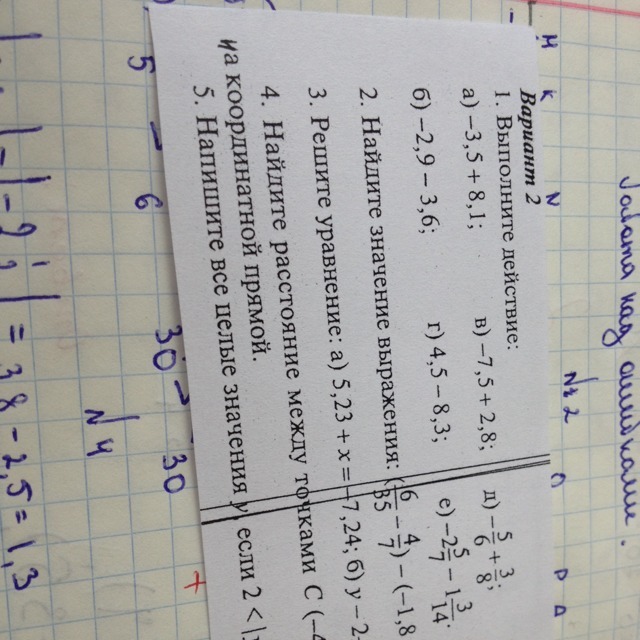 Вариант 2
1. Выполните действие:
а) −3,5 + 8,1; в) −7,5 + 2,8; д) −5/6 + 3/8;
б) −2,9 − 3,6; г) 4,5 − 8,3; е) −2 5/7 − 1 3/14.
2. Найдите значение выражения: (6/35 − 4/7) − (−1,8
3. Решите уравнение: а) 5,23 + x = −7,24; б) y − 2
4. Найдите расстояние между точками С (−4
на координатной прямой.
5. Напишите все целые значения y, если 2 <
Работа над ошибками.
№2
№4
= 3,8 − 2,5 = 1,3